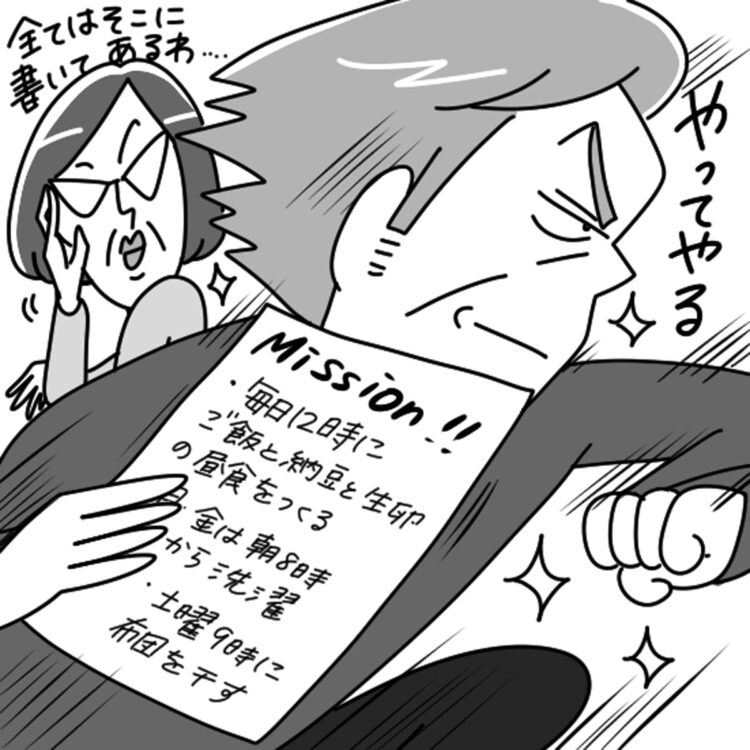 全てはそこに
書いてあるわ....
やってやる
Mission!!
・毎日12時に
ご飯と納豆と生卵
の昼食をつくる
金は朝8時
から洗濯
・土曜9時に
布団を干す